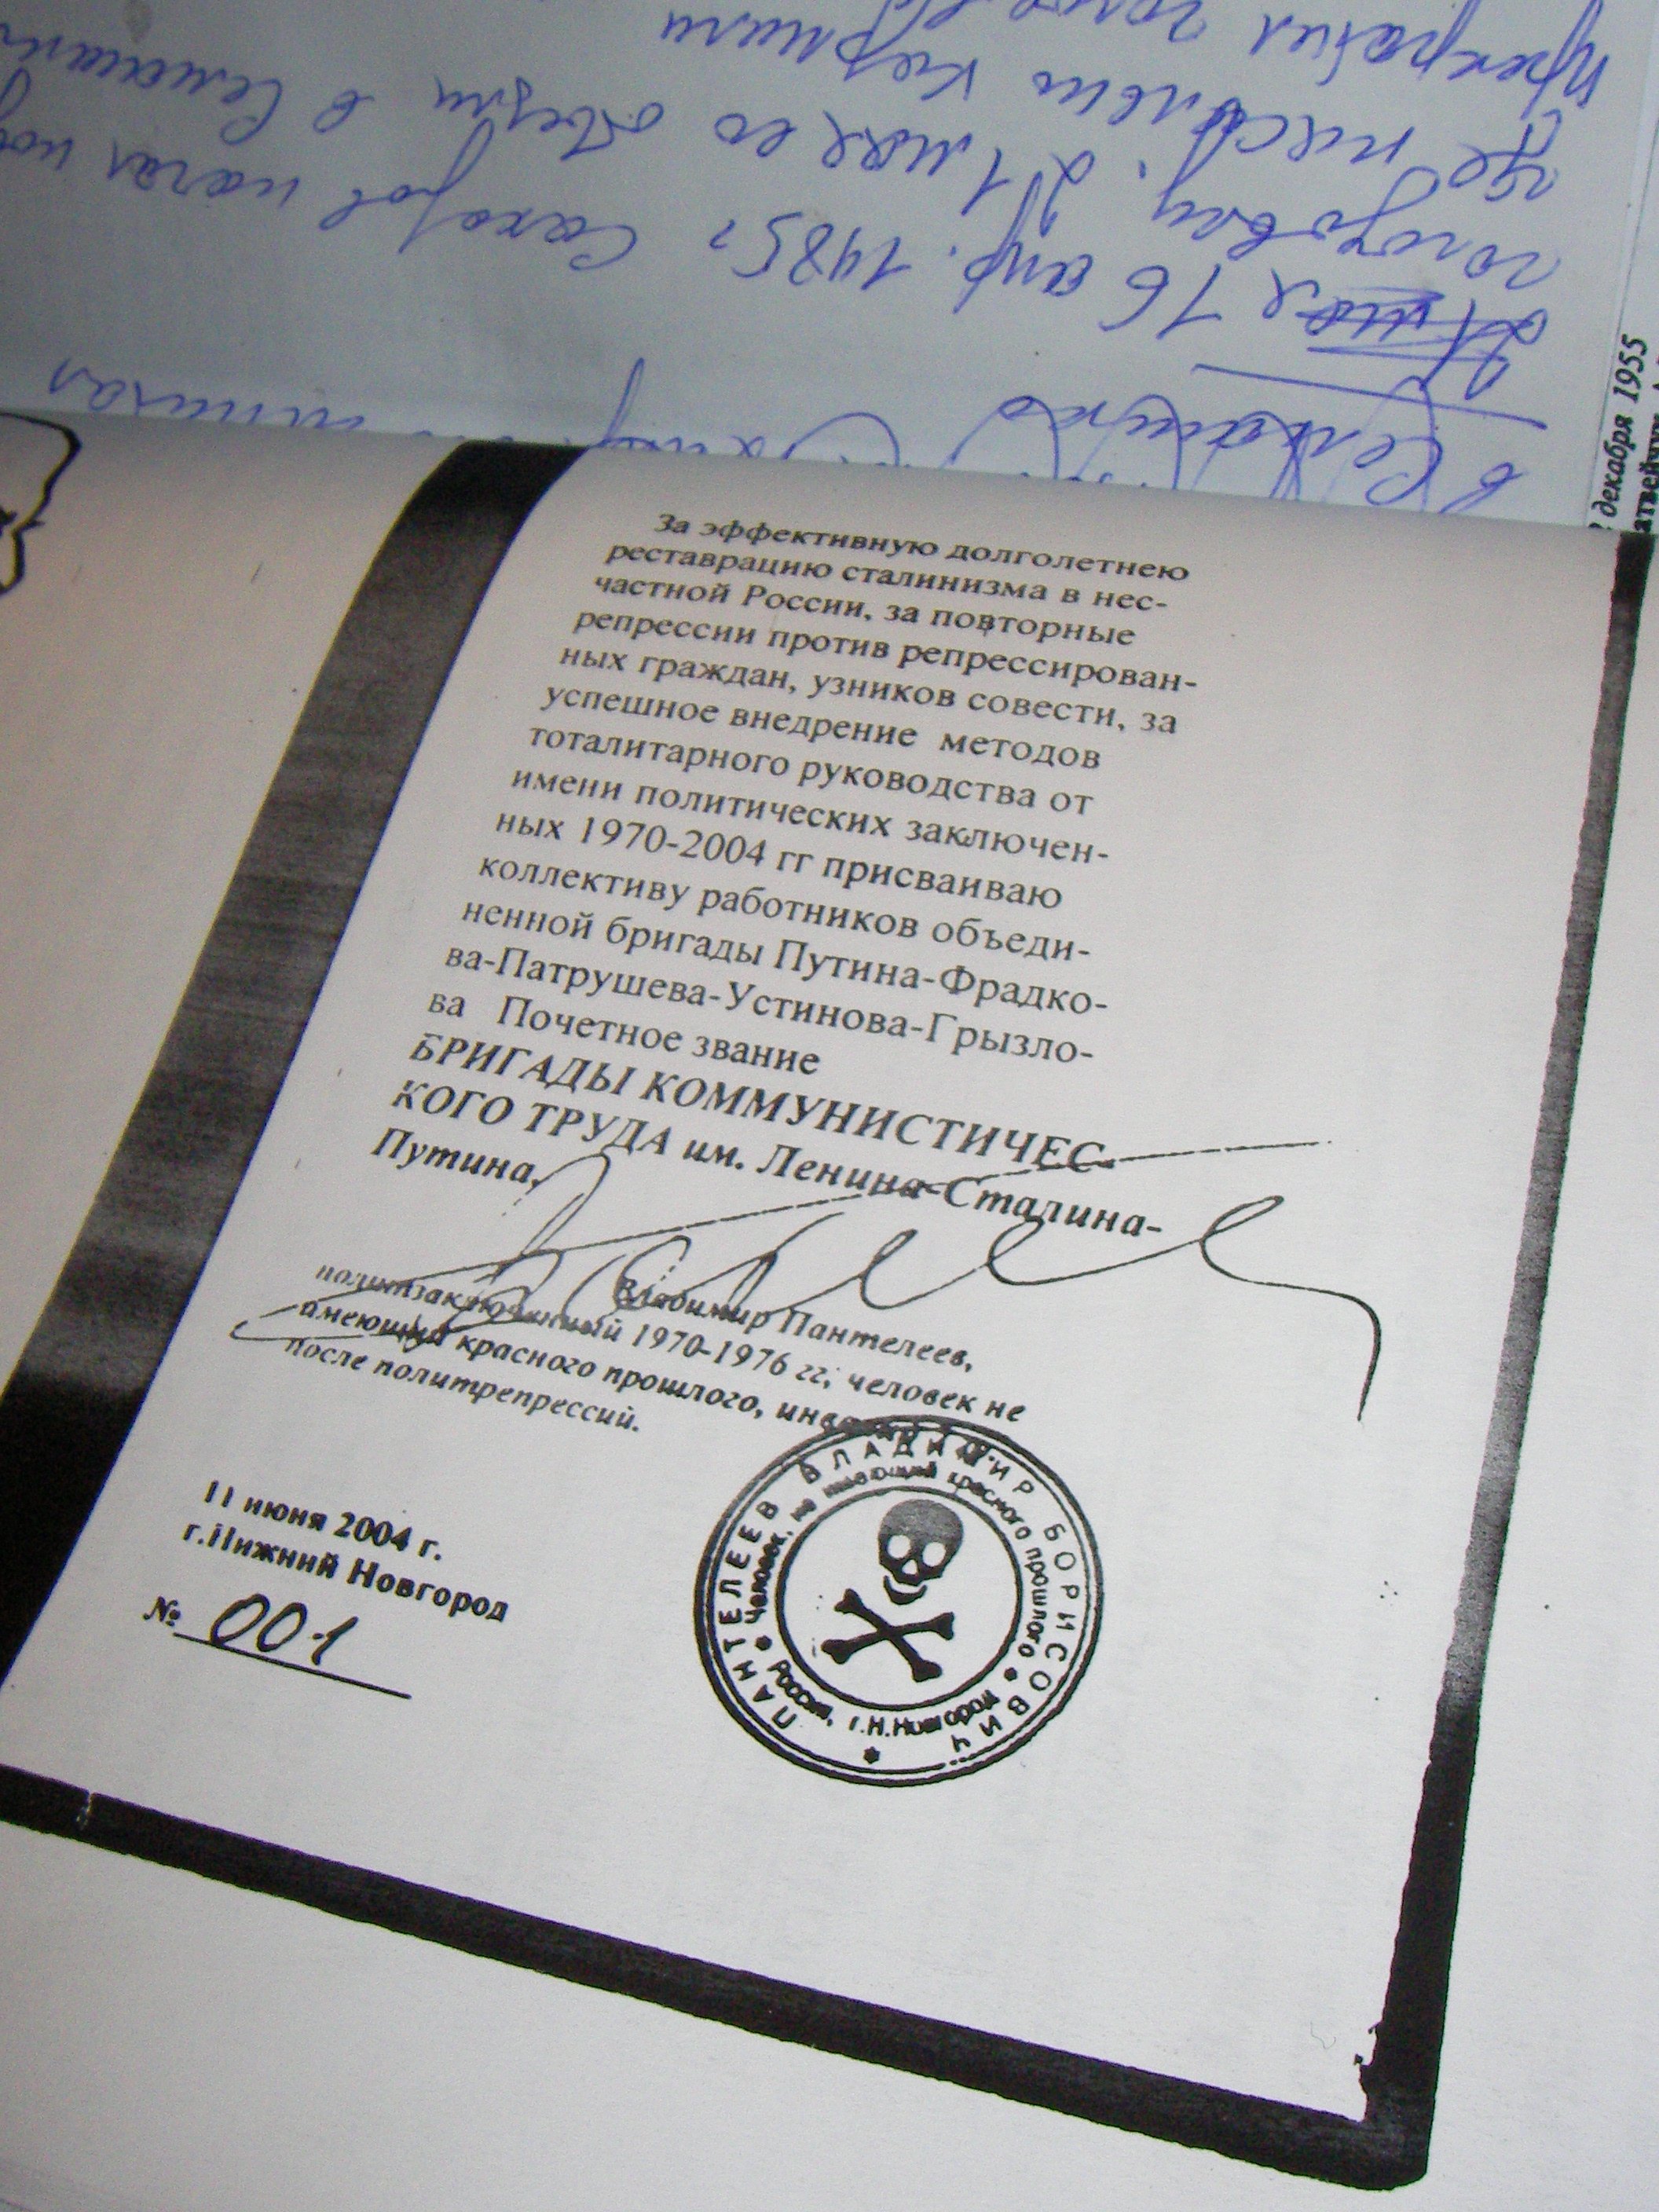 прекратил
где насильно кормили
голодовку. 21 мая его отвезли в
16 апр. 1985г Сахаров начал
в Семашко
декабря 1955
За эффективную долголетнею
реставрацию сталинизма в нес-
частной России, за повторные
репрессии против репрессирован-
ных граждан, узников совести, за
успешное внедрение методов
тоталитарного руководства от
имени политических заключен-
ных 1970-2004 гг присваиваю
коллективу работников объеди-
ненной бригады Путина-Фрадко-
ва-Патрушева-Устинова-Грызло-
ва Почетное звание
БРИГАДЫ КОММУНИСТИЧЕС-
КОГО ТРУДА им. Ленина-Сталина-
Путина,
Владимир Пантелеев,
политзаключенный 1970-1976 гг, человек не
имеющий красного прошлого, инвалид
после политрепрессий.
11 июня 2004 г.
г.Нижний Новгород
№ 001
ПАНТЕЛЕЕВ ВЛАДИМИР БОРИСОВИЧ
Человек, не имеющий красного прошлого
Россия, г.Н.Новгород